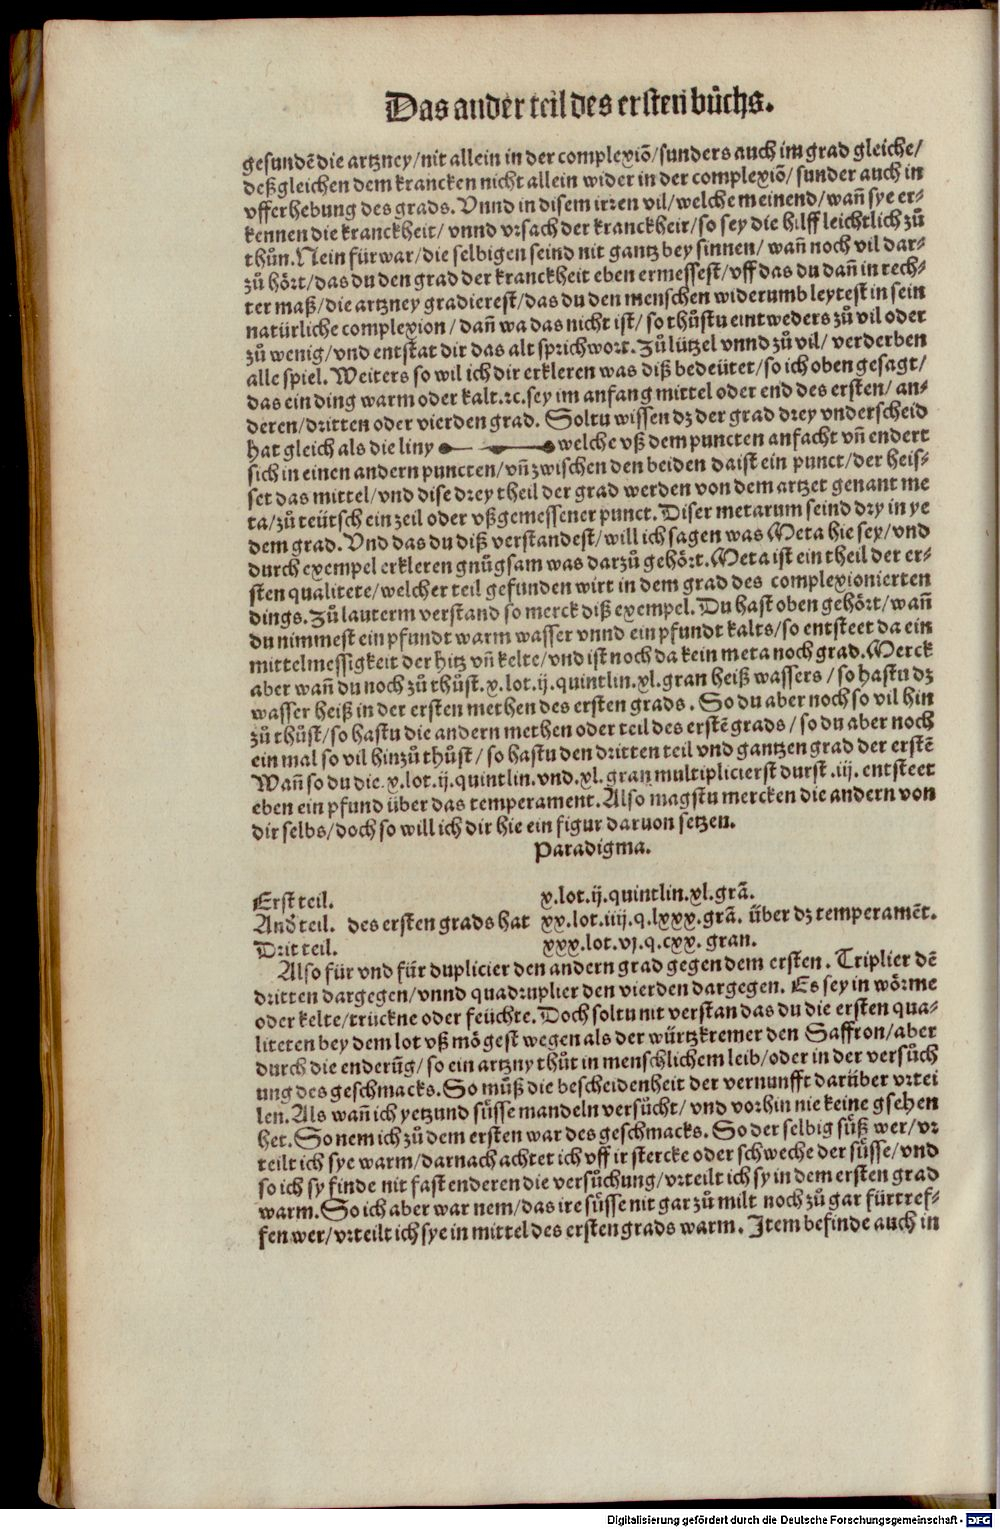 Das ander teil des ersten bůchs.
gesundē die artzney/nit allein in der complexiō/sunders auch im grad gleiche/
deßgleichen dem krancken nicht allein wider in der complexiō/ sunder auch in
vfferhebung des grads. Vnnd in disem irren vil/welche meinend/wañ sye er-
kennen die kranckheit/ vnnd vrsach der kranckheir/so sey die hilff leichtlich zů
thůn. Nein fürwar/die selbigen seind nit gantz bey sinnen/ wañ noch vil dar-
zů hört/das du den grad der kranckheit eben ermessest/vff das du dañ in rech-
ter maß/die artzney gradierest/das du den menschen widerumb leytest in sein
natürliche complexion/ dañ wa das nicht ist/ so thůstu eintweders zů vil oder
zů wenig/vnd entstat dir das alt sprichwort. Zů lützel vnnd zů vil/ verderben
alle spiel. Weiters so wil ich dir erkleren was diß bedeütet/so ich oben gesagt/
das ein ding warm oder kalt.ꝛc.sey im anfang mittel oder end des ersten/ an-
deren/dritten oder vierden grad. Soltu wissen dz der grad drey vnderscheid
hat gleich als die liny welche vß dem puncten anfacht vñ endert
sich in einen andern puncten/vñ zwischen den beiden da ist ein punct/der heis-
set das mittel/vnd dise drey theil der grad werden von dem artzet genant me
ta/zů teütsch ein zeil oder vßgemessener punct. Diser metarum seind dry in ye
dem grad. Vnd das du diß verstandest/will ich sagen was Meta hie sey/vnd
durch exempel erkleren gnůgsam was darzů gehört. Meta ist ein theil der er-
sten qualitete/welcher teil gefunden wirt in dem grad des complexionierten
dings. Zů lauterm verstand so merck diß exempel. Du hast oben gehört/wañ
du nimmest ein pfundt warm wasser vnnd ein pfundt kalts/so entsteet da ein
mittelmessigkeit der hitz vñ kelte/vnd ist noch da kein meta noch grad. Merck
aber wañ du noch zů thůst.x.lot.ij.quintlin.xl.gran heiß wassers/so hastu dz
wasser heiß in der ersten methen des ersten grads. So du aber noch so vil hin
zů thůst/so hastu die andern methen oder teil des erstē grads/so du aber noch
ein mal so vil hinzů thůst/ so hastu den dritten teil vnd gantzen grad der erstē
Wañ so du die.x.lot.ij.quintlin.vnd.xl.gran multiplicierst durst.iij. entsteet
eben ein pfund über das temperament. Also magstu mercken die andern von
dir selbs/doch so will ich dir hie ein figur daruon setzen.
Paradigma.
Erst teil. x.lot.ij.quintlin.xl.grā.
And̄ teil. des ersten grads hat xx.lot.iiij.q.lxxx.grā. über dz temperamēt.
Drit teil. xxx.lot.vj.q.cxx. gran.
Also für vnd für duplicier den andern grad gegen dem ersten. Triplier dē
dritten dargegen/vnnd quadruplier den vierden dargegen. Es sey in wörme
oder kelte/trückne oder feüchte. Doch soltu nit verstan das du die ersten qua-
liteten bey dem lot vß mögest wegen als der würtzkremer den Saffron/aber
durch die enderūg/ so ein artzny thůt in menschlichem leib/oder in der versůch
ung des geschmacks. So můß die bescheidenheit der vernunfft darüber vrtei
len. Als wañ ich yetzund süsse mandeln versücht/ vnd vorhin nie keine gsehen
het. So nem ich zů dem ersten war des geschmacks. So der selbig süß wer/vr
teilt ich sye warm/darnach achtet ich vff ir stercke oder schweche der süsse/vnd
so ich sy finde nit fast enderen die versůchung/vrteilt ich sy in dem ersten grad
warm. So ich aber war nem/das ire süsse nit gar zů milt noch zů gar fürtref-
fen wer/vrteilt ich sye in mittel des ersten grads warm. Item befinde auch in
Digitalisierung gefördert durch die Deutsche Forschungsgemeinschaft - DFG